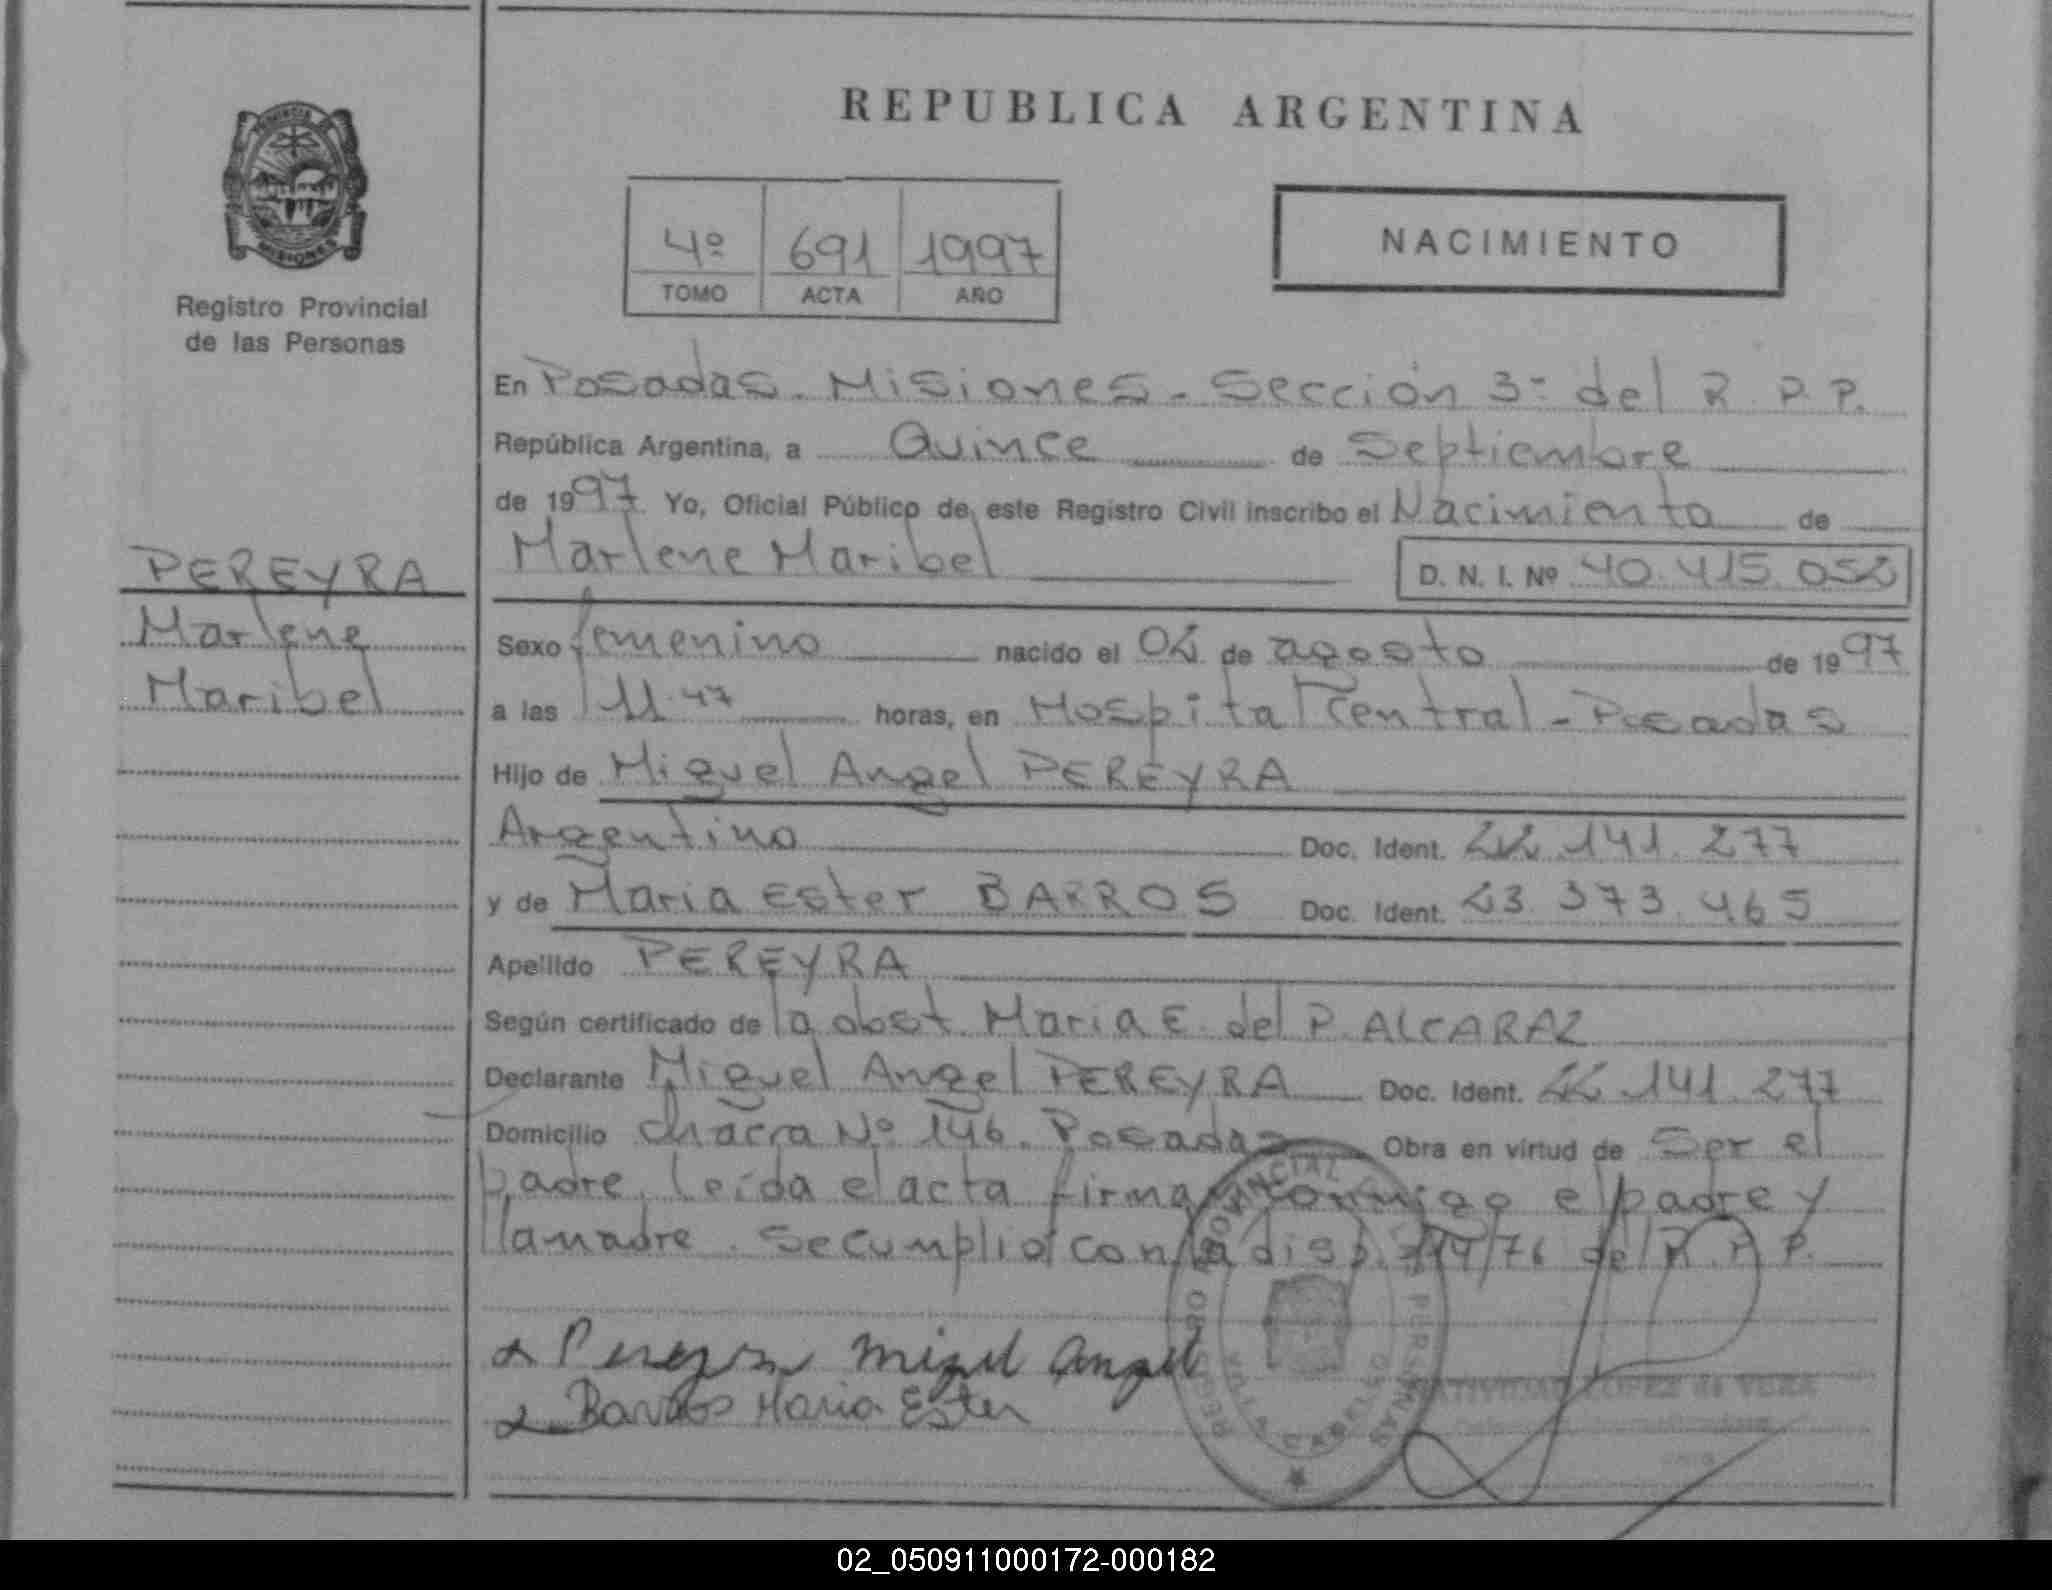 REPUBLICA ARGENTINA
PROVINCIA DE
MISIONES
Registro Provincial
de las Personas
4º 691 1997
TOMO ACTA AÑO
NACIMIENTO
En Posadas - Misiones - Sección 3= del R.P.P.
República Argentina, a Quince de Septiembre
de 1997 Yo, Oficial Público de este Registro Civil inscribo el Nacimiento de
Marlene Maribel D. N. I. Nº 40.415.052
PEREYRA
Marlene
Maribel
Sexo femenino nacido el 02 de agosto de 1997
a las 11.47 horas, en Hospital Central - Posadas
Hijo de Miguel Angel PEREYRA
Argentino Doc. Ident. 22.141.277
y de Maria Ester BARROS Doc. Ident. 23.373.465
Apellido PEREYRA
Según certificado de la obst. Maria E. del P. ALCARAZ
Declarante Miguel Angel PEREYRA Doc. Ident. 22.141.277
Domicilio chacra Nº 146. Posadas Obra en virtud de Ser el
padre, leída el acta firma conmigo el padre y
la madre. Se cumplió con la disp. /76 del R.P.P.
Pereyra Miguel Angel
Barros Maria Ester
NATIVIDAD LOPEZ de VERA
02_050911000172-000182